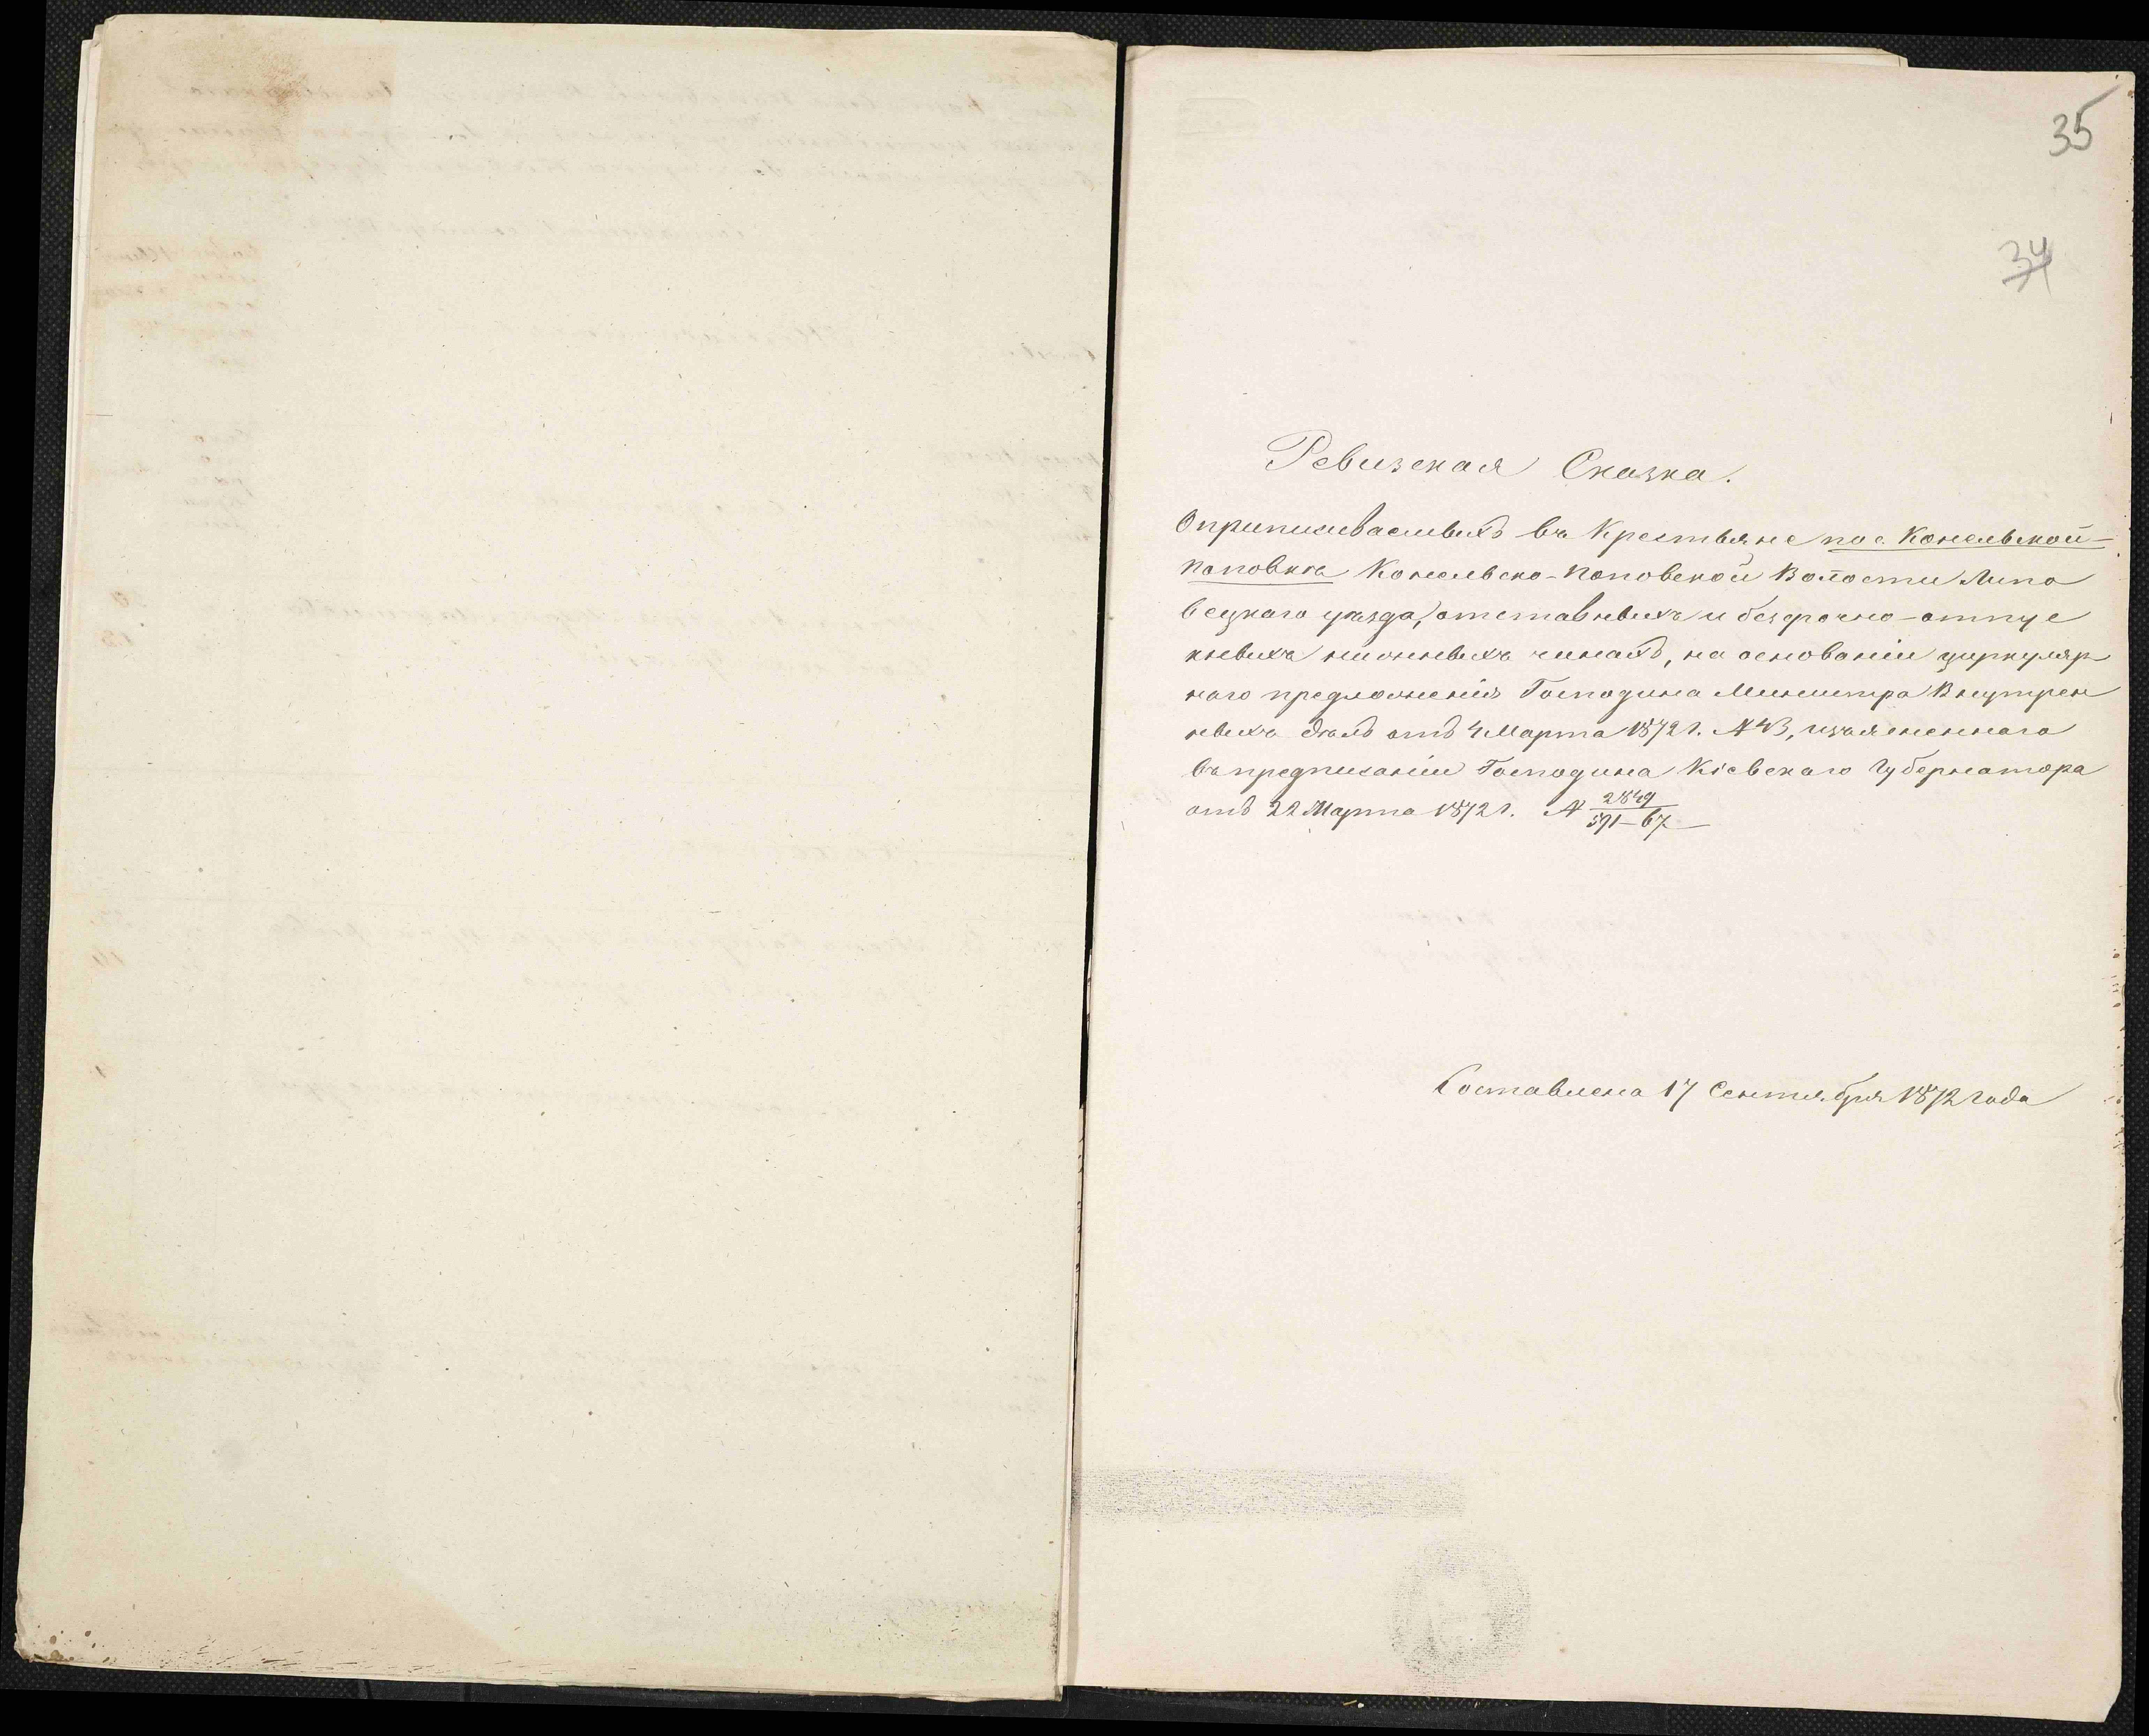 35
34
Ревизская Сказка.
О приписываемыхъ въ Крестьяне по с. Конельской-
Поповкѣ Конельско-Поповской Волости Липо
вецкаго уѣзда, отставныхъ и безсрочно-отпус
кныхъ нижныхъ чинахъ, на основаніи циркуляр
наго предложенія Господина Министра Внутрен
ныхъ дѣлъ отъ 4 Марта 1872 г. № 43, изъясненнаго
въ предписаніи Господина Кіевскаго Губернатора
отъ 22 Марта 1872 г. № 2849/591-67
Составлена 17 Сентября 1872 года